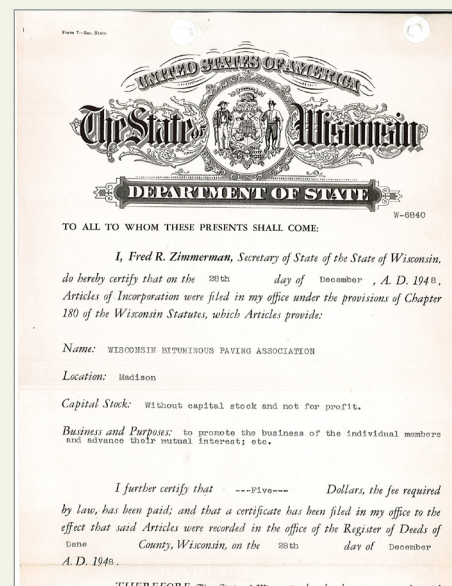 Form 7—Sec. State
UNITED STATES OF AMERICA
The State of Wisconsin
DEPARTMENT OF STATE
W-6840
TO ALL TO WHOM THESE PRESENTS SHALL COME:
I, Fred R. Zimmerman, Secretary of State of the State of Wisconsin,
do hereby certify that on the 28th day of December , A. D. 1948,
Articles of Incorporation were filed in my office under the provisions of Chapter
180 of the Wisconsin Statutes, which Articles provide:
Name: WISCONSIN BITUMINOUS PAVING ASSOCIATION
Location: Madison
Capital Stock: Without capital stock and not for profit.
Business and Purposes: to promote the business of the individual members
and advance their mutual interest; etc.
I further certify that ---Five--- Dollars, the fee required
by law, has been paid; and that a certificate has been filed in my office to the
effect that said Articles were recorded in the office of the Register of Deeds of
Dane County, Wisconsin, on the 28th day of December
A. D. 1948.
THEREFORE The State of Wisconsin